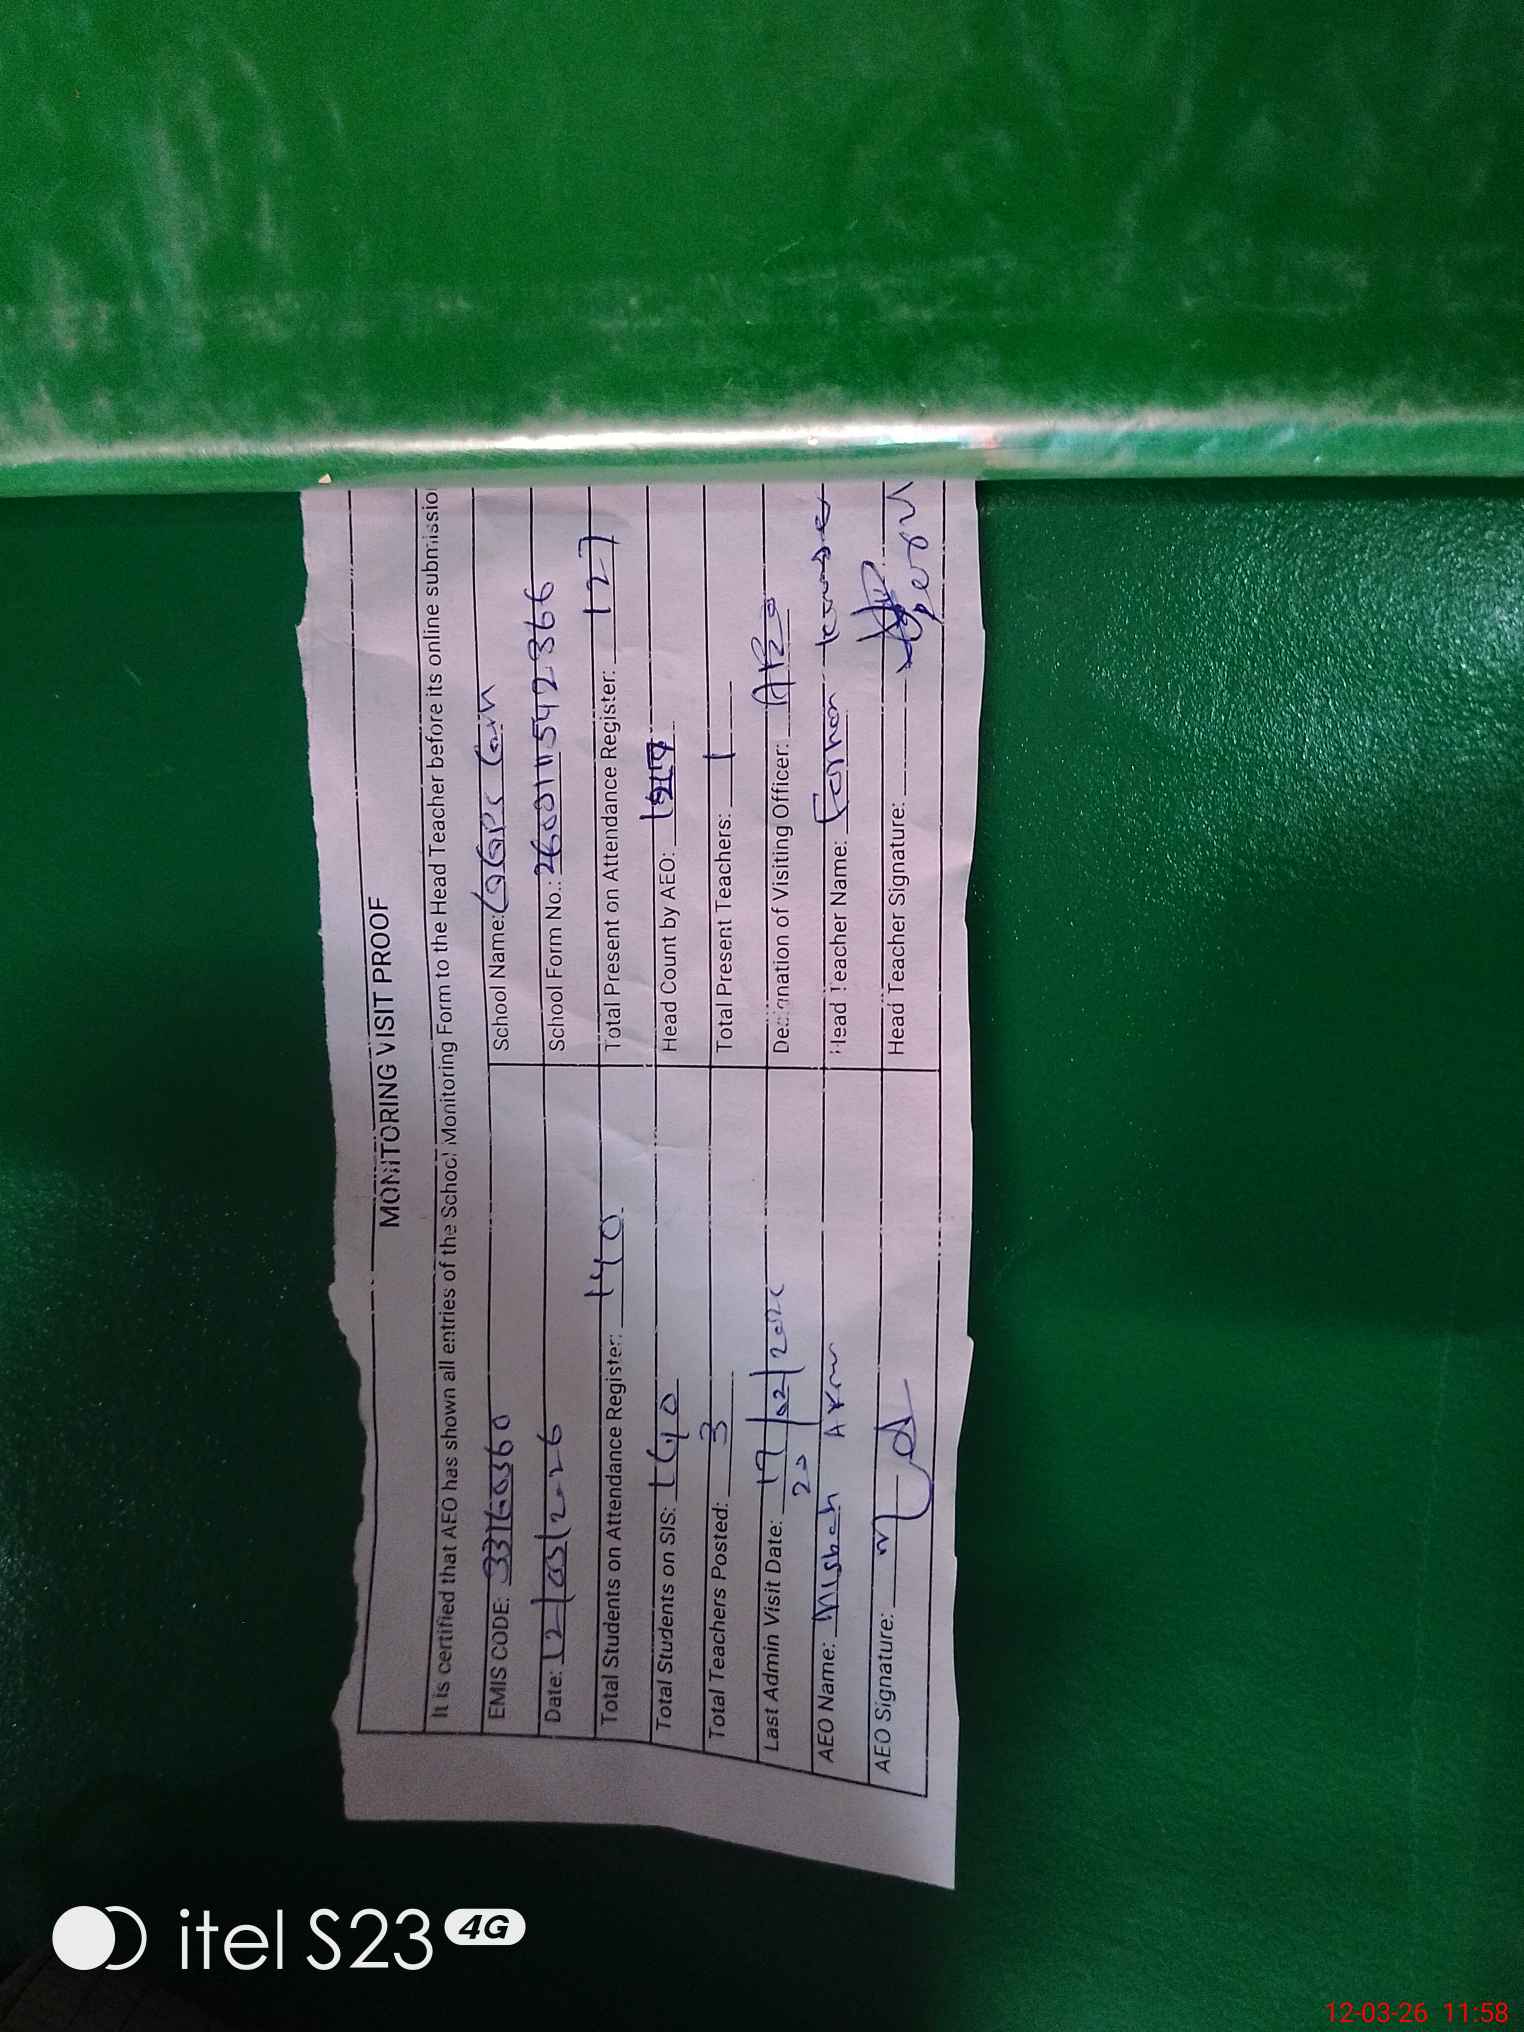 MONITORING VISIT PROOF
It is certified that AEO has shown all entries of the School Monitoring Form to the Head Teacher before its online submissio
EMIS CODE: 33160360 School Name: GGPS
Date: 12/03/2026 School Form No.:
Total Students on Attendance Register: 140 Total Present on Attendance Register: 127
Total Students on SIS: 140 Head Count by AEO:
Total Teachers Posted: 3 Total Present Teachers: 1
Last Admin Visit Date: 17/02/ Designation of Visiting Officer:
20
AEO Name: Misbah Head Teacher Name: Farhan
AEO Signature: Head Teacher Signature:
itel S23 4G
12-03-26 11:58